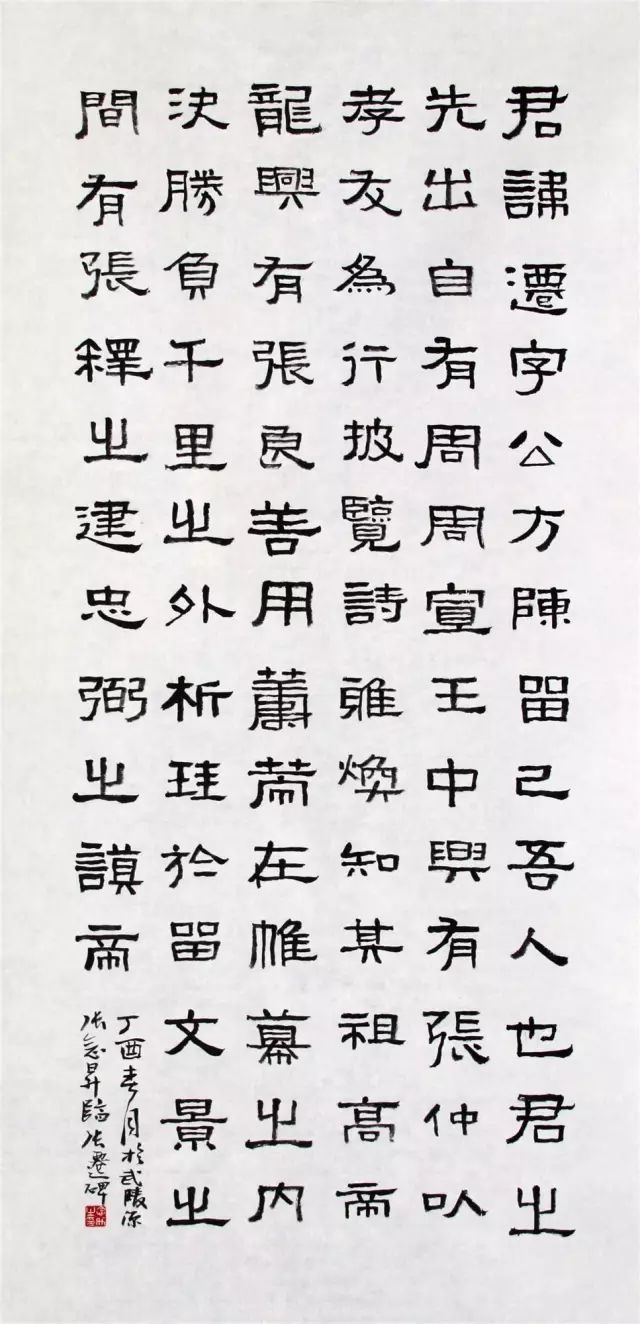 君諱遷字公方陳留己吾人也君之
先出自有周周宣王中興有張仲以
孝友為行披覽詩雅煥知其祖高帝
龍興有張良善用籌策在帷幕之內
決勝負千里之外析珪於留文景之
間有張釋之建忠弼之謨帝
丁酉春月於武陵源
张昇臨张遷碑